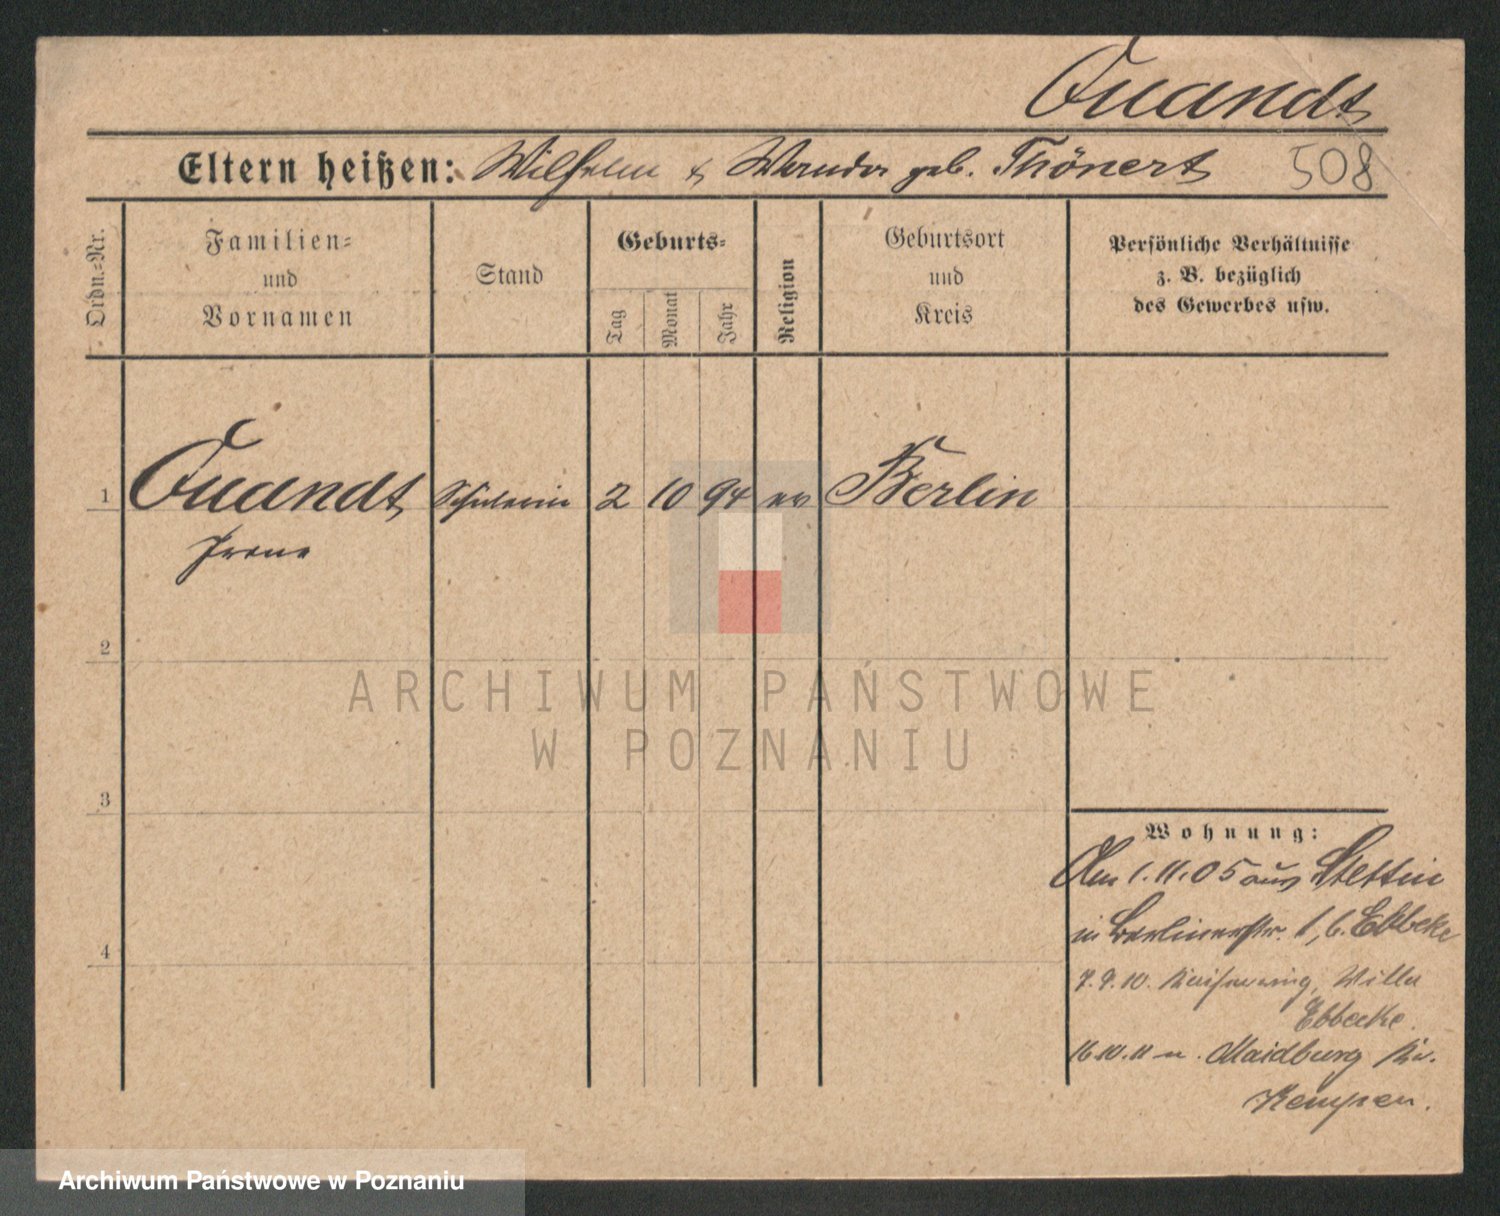 Quandt
Eltern heißen: Wilhelm & Wanda geb. Thönert 508
Ordn.-Nr.
Familien-
und
Vornamen
Stand
Geburts-
Tag
Monat
Jahr
Religion
Geburtsort
und
Kreis
Persönliche Verhältnisse
z. B. bezüglich
des Gewerbes usw.
1 Quandt Schülerin 2 10 94 ev Berlin
Irene
2
3
4
Wohnung:
Am 1.11.05 aus Stettin
in Berlinerstr. 1, b. Ebbeke
7.9.10. Kaiserring, Villa
Ebbecke.
16.10.11 n. Maidburg Kr.
Kempen.
ARCHIWUM PAŃSTWOWE
W POZNANIU
Archiwum Państwowe w Poznaniu